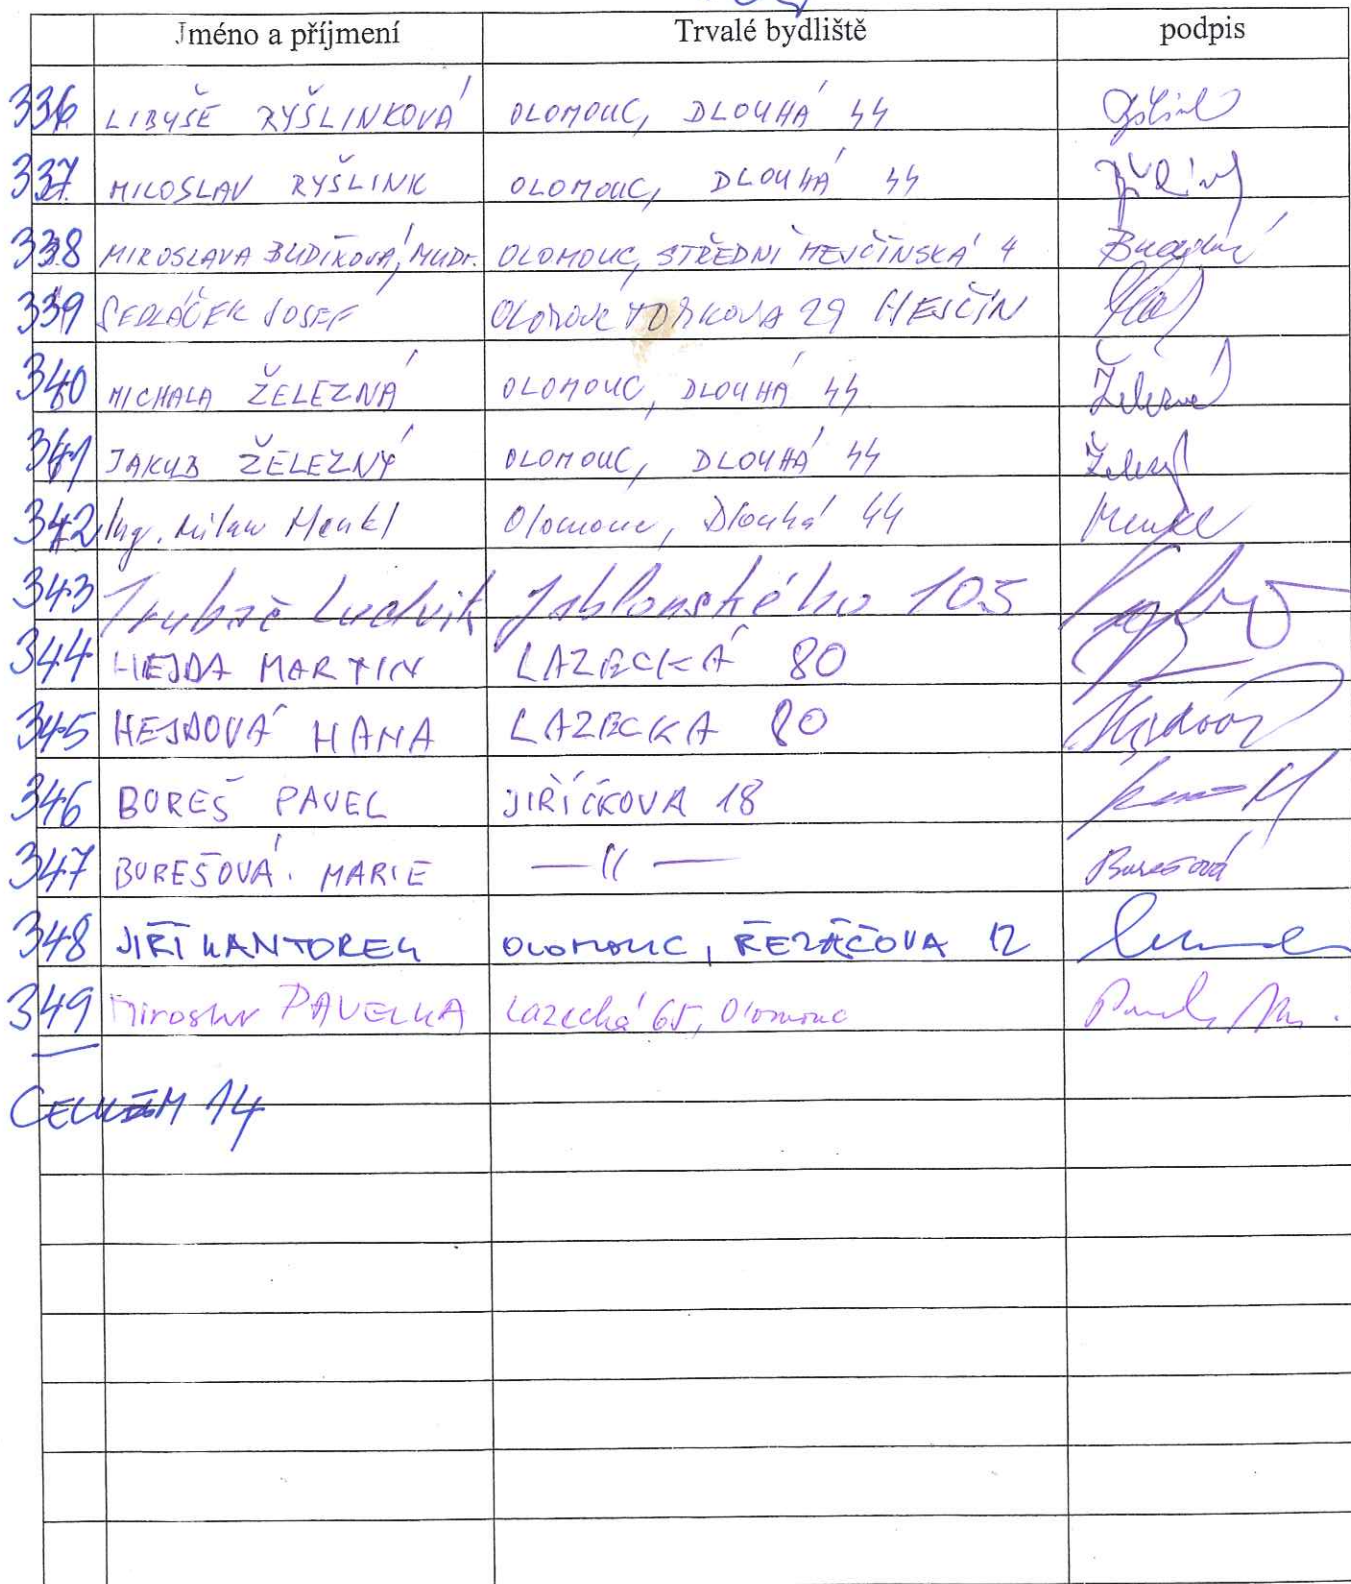 Jméno a příjmení Trvalé bydliště podpis
336 LIBUŠE RYŠLINKOVÁ OLOMOUC, DLOUHÁ 44
337 MILOSLAV RYŠLINK OLOMOUC, DLOUHÁ 44
338 MIROSLAVA BUDÍKOVÁ, MUDr. OLOMOUC, STŘEDNÍ HEJČÍNSKÁ 4
339 SEDLÁČEK JOSEF OLOMOUC 29 HEJČÍN
340 MICHALA ŽELEZNÁ OLOMOUC, DLOUHÁ 44 Železná
341 JAKUB ŽELEZNÝ OLOMOUC, DLOUHÁ 44 Železný
342 Ing. Milan Menkl Olomouc, Dlouhá 44 Menkl
343 Ludvik Jablonského 105
344 HEJDA MARTIN LAZECKÁ 80
345 HEJDOVÁ HANA LAZECKA 80 Hejdová
346 BUREŠ PAVEL JIŘÍČKOVA 18
347 BUREŠOVÁ. MARIE —"—  Burešová
348 JIŘÍ KANTOREK OLOMOUC, ŘEZÁČOVA 12
349 Miroslav PAVELKA Lazecká 65, Olomouc
CELKEM 14